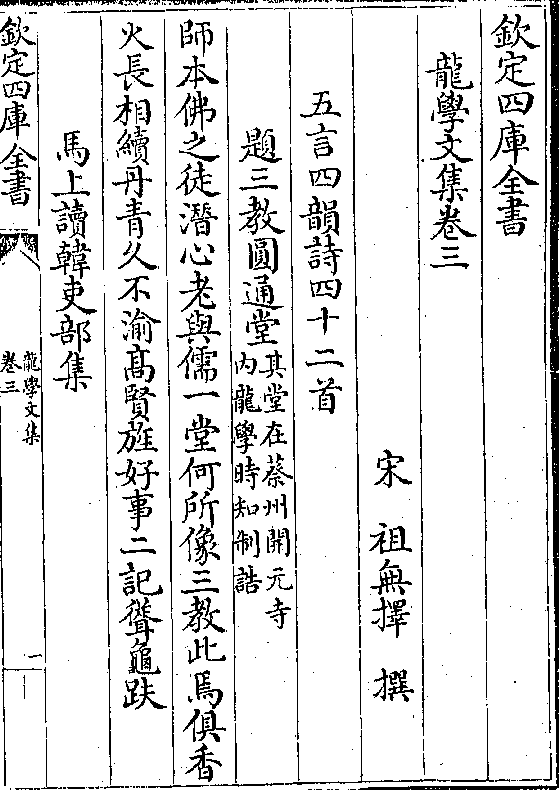 欽定四庫全書
龍學文集卷三
宋 祖無擇 撰
五言四韻詩四十二首
題三教圓通堂其堂在蔡州開元寺
內龍學時知制誥
師本佛之徒潛心老與儒一堂何所像三教此焉俱香
火長相續丹青久不渝髙賢旌好事二記聳龜趺
馬上讀韓吏部集
欽定四庫全書
龍學文集
卷三
一